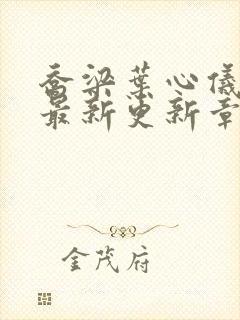 乔梁葉心儀
最新更新章
金茂府